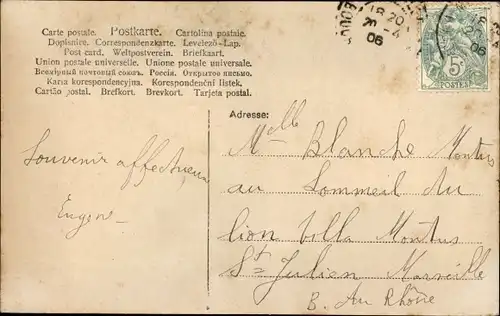 Carte postale. Postkarte. Cartolina postale.
Dopisnice. Correspondenzkarte. Levelező-Lap.
Post card. Weltpostverein. Briefkaart.
Union postale universelle. Unione postale universale.
Всемірный почтовый союзъ. Россія. Открытое письмо.
Karta korespondencyjna. Korespondenční lístek.
Cartão postal. Brefkort. Brevkort. Tarjeta postal.
18 20
20 - 4
06
06
5c
POSTES
Adresse:
Souvenir affectueux
Eugène
Melle Blanche Montus
au Sommeil du
lion villa Montus
St Julien Marseille
B. du Rhône